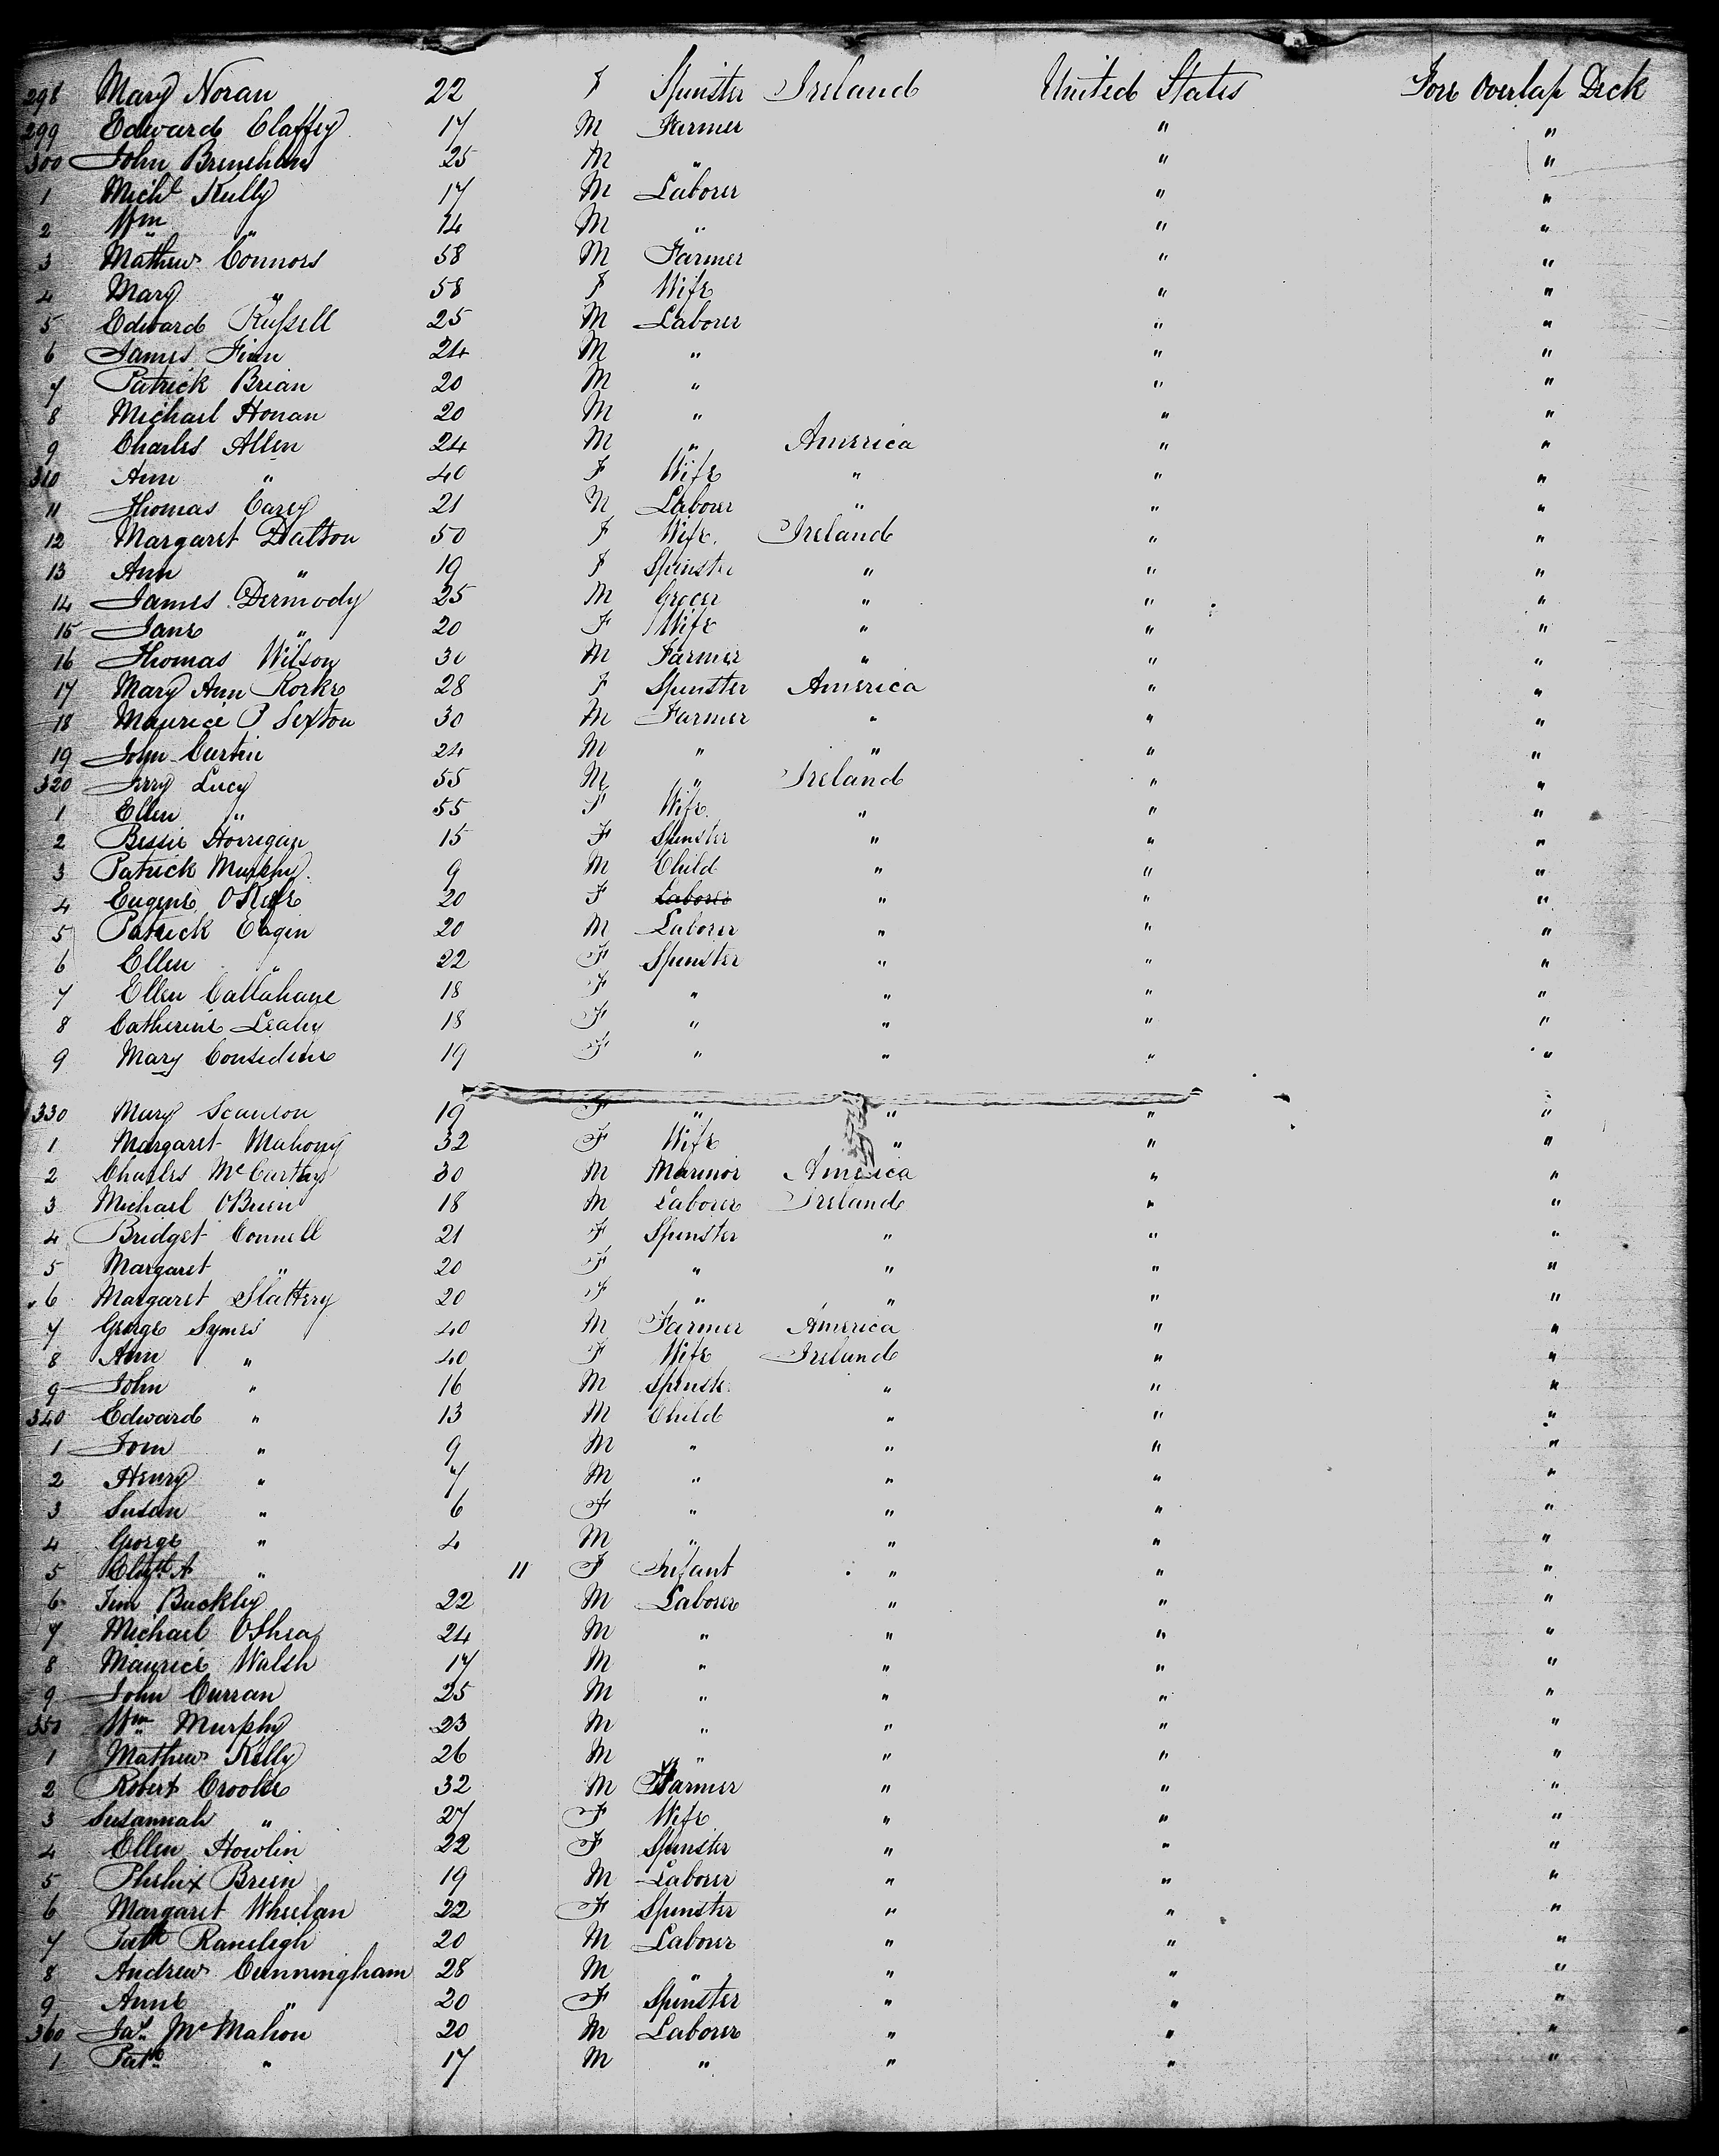 298 Mary Noran 22 F Spinster Ireland United States Fore Overlap Deck
299 Edward Claffey 17 M Farmer " "
300 John 25 M " " "
1 Michl Kelly 17 M Laborer " "
2 Wm " 14 M " " "
3 Mathew Connors 58 M Farmer " "
4 Mary " 58 F Wife " "
5 Edward Russell 25 M Laborer " "
6 James Finn 24 M " " "
7 Patrick Brian 20 M " " "
8 Michael Honan 20 M " " "
9 Charles Allen 24 M " America " "
310 Ann " 40 F Wife " " "
11 Thomas Carey 21 M Laborer " " "
12 Margaret Dalton 50 F Wife. Ireland " "
13 Ann " 19 F Spinster " " "
14 James Dermody 25 M Grocer " " "
15 Jane " 20 F Wife " " "
16 Thomas Wilson 30 M Farmer " " "
17 Mary Ann Rorke 28 F Spinster America " "
18 Maurice P Sexton 30 M Farmer " " "
19 John Curtin 24 M " " " "
320 Jerry Lucy 55 M " Ireland " "
1 Ellen " 55 F Wife. " " "
2 Bessie Horrigan 15 F Spinster " " "
3 Patrick Murphy. 9 M Child " " "
4 Eugene OKeefe 20 F Laborer " " "
5 Patrick Eagin 20 M Laborer " " "
6 Ellen " 22 F Spinster " " "
7 Ellen Callahane 18 F " " " "
8 Catherine Leahy 18 F " " " "
9 Mary Considine 19 F " " " "
330 Mary Scanlon 19 F " " " "
1 Margaret Mahony 32 F Wife " " "
2 Charles McCarthy 30 M Marinor America " "
3 Michael OBrien 18 M Laborer Ireland " "
4 Bridget Connell 21 F Spinster " " "
5 Margaret " 20 F " " " "
6 Margaret Slattery 20 F " " " "
7 George Symes 40 M Farmer America " "
8 Ann " 40 F Wife Ireland " "
9 John " 16 M Spinst. " " "
340 Edward " 13 M Child " " "
1 Tom " 9 M " " " "
2 Henry " 7 M " " " "
3 Susan " 6 F " " " "
4 George " 4 M " " " "
5 Elizth A " 11 F Infant " " "
6 Jim Buckley 22 M Laborer " " "
7 Michael OShea 24 M " " " "
8 Maurice Walsh 17 M " " " "
9 John Curran 25 M " " " "
350 Wm Murphy 23 M " " " "
1 Mathew Kelly 26 M " " " "
2 Robert Crooke 32 M Farmer " " "
3 Susannah " 27 F Wife " " "
4 Ellen Howlin 22 F Spinster " " "
5 Phelix Brien 19 M Laborer " " "
6 Margaret Wheelan 22 F Spinster " " "
7 Patk Raneligh 20 M Laborer " " "
8 Andrew Cunningham 28 M " " " "
9 Anne " 20 F Spinster " " "
360 Jas McMahon 20 M Laborer " " "
1 Patk " 17 M " " " "